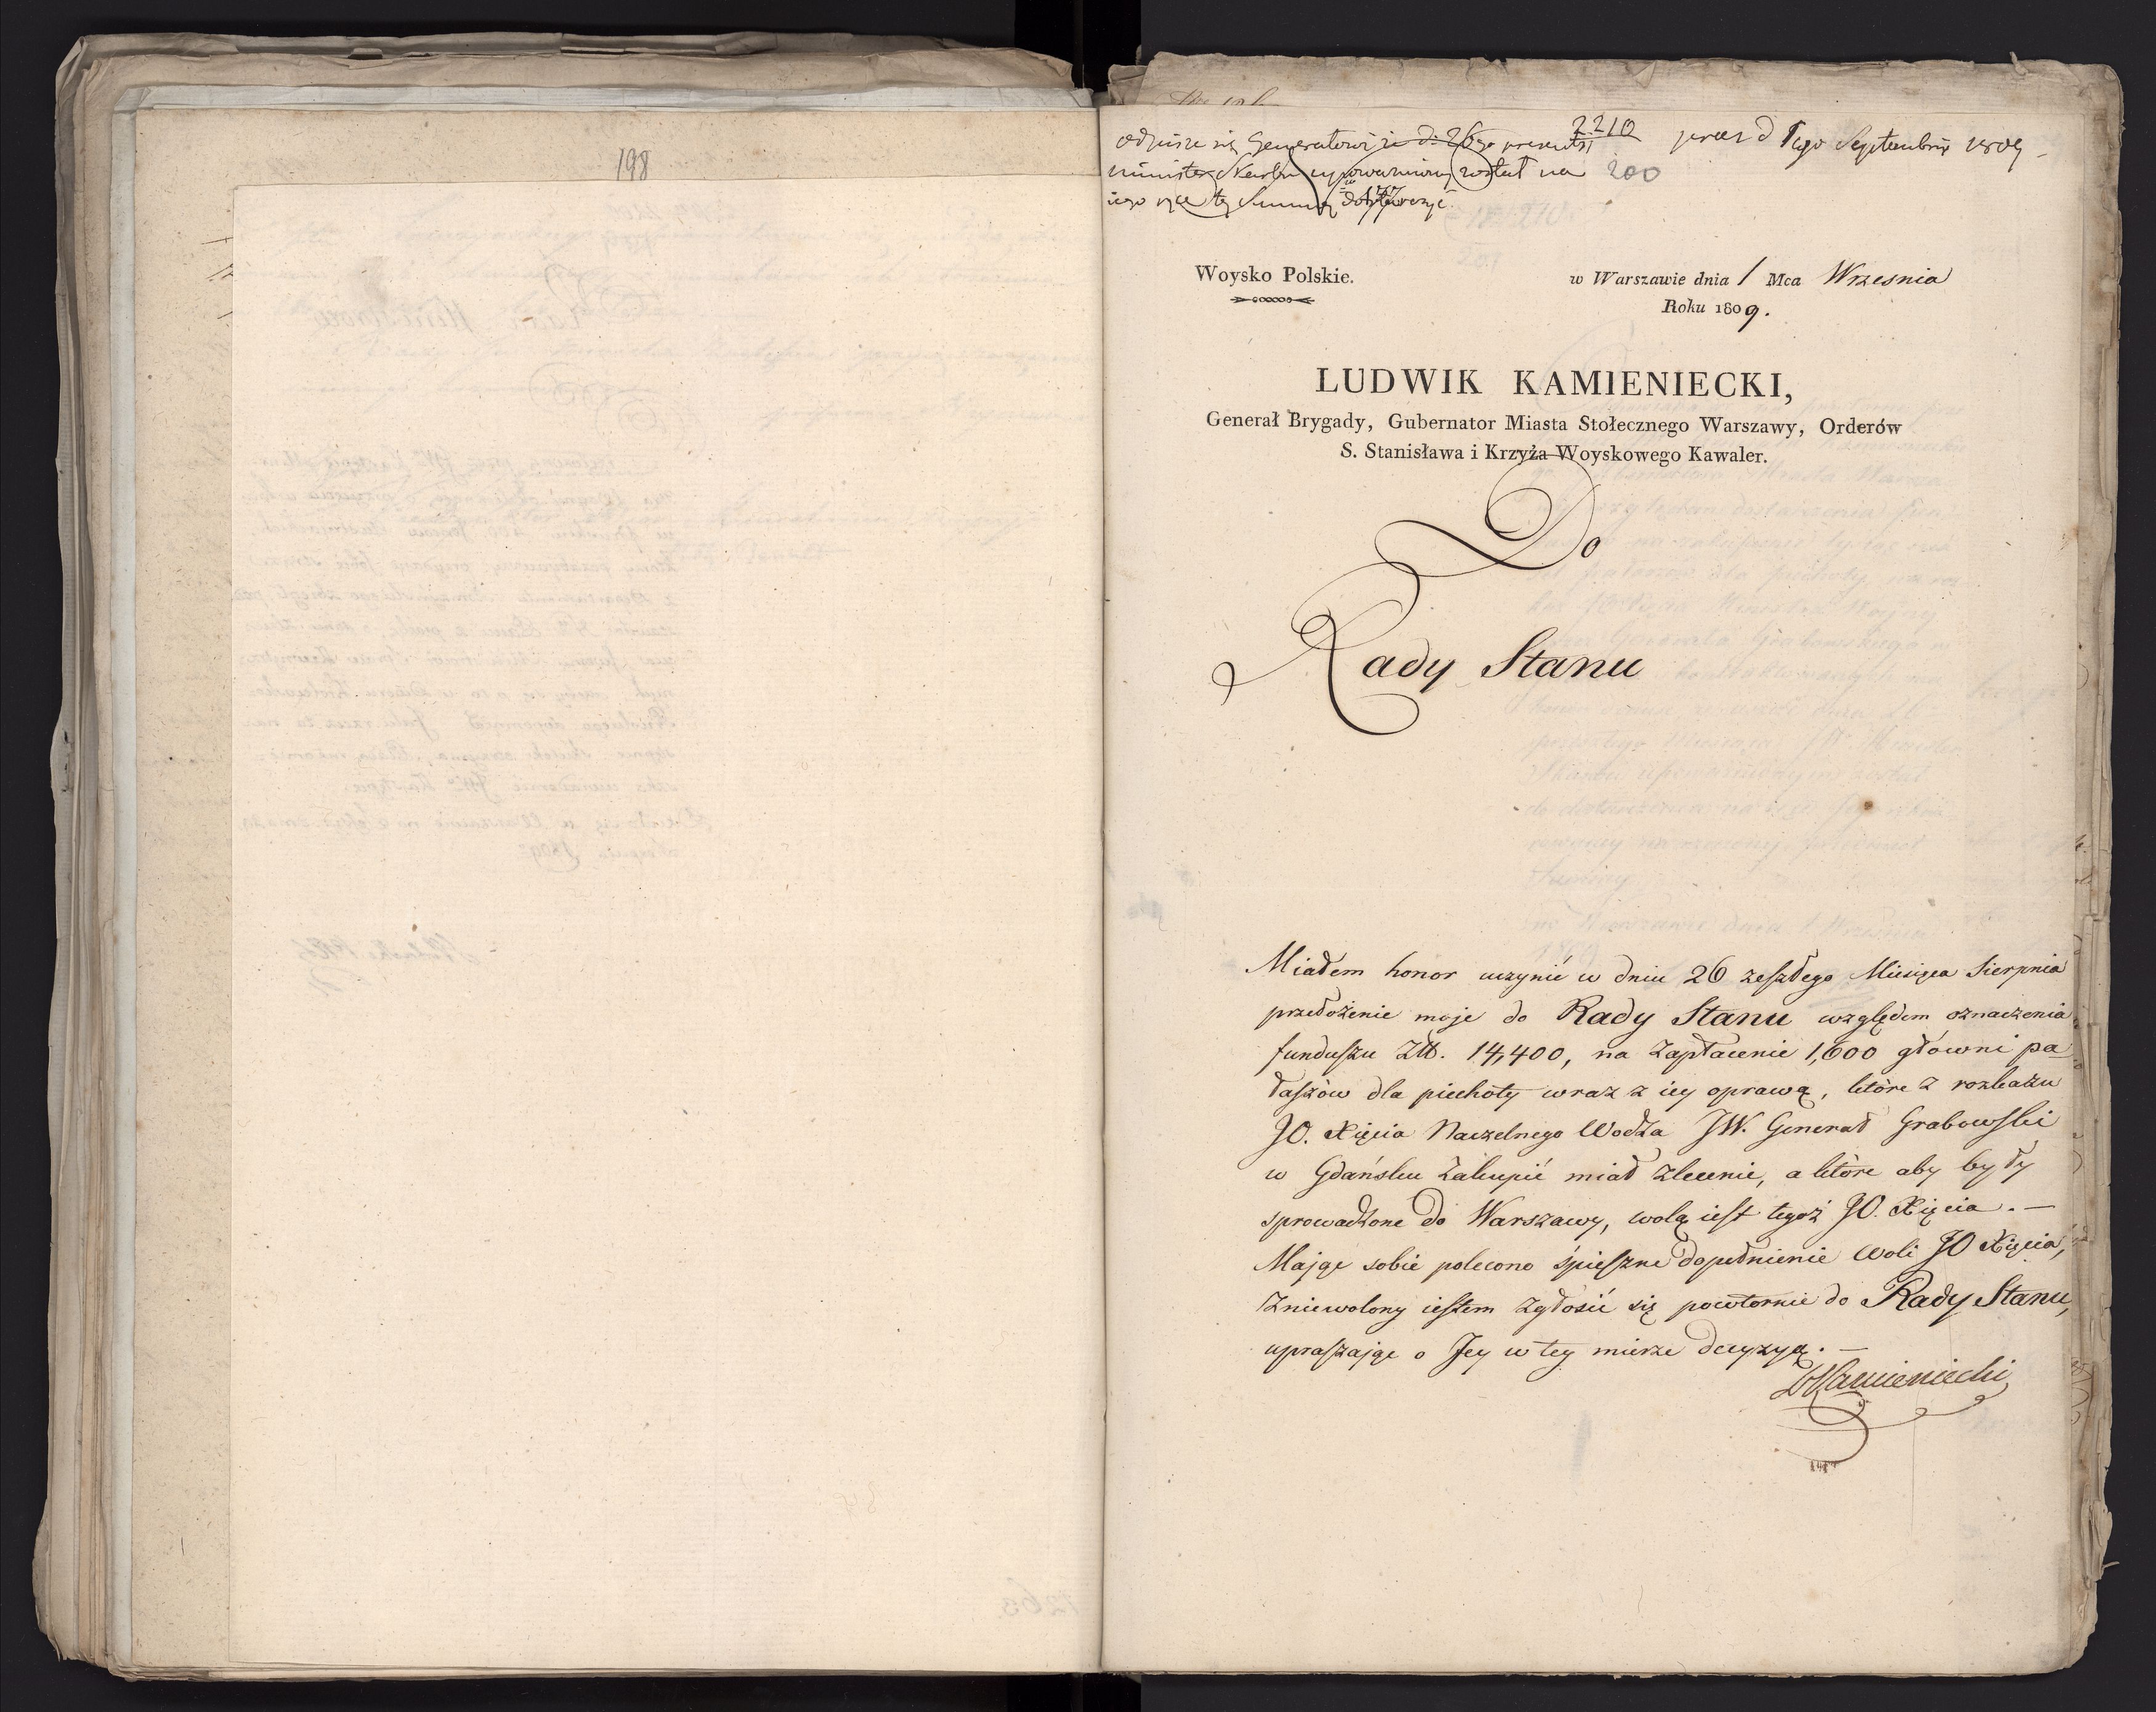 198
2210
odpisze się Generałowi że d: 26go
minister Skarbu upoważniony został na
200
iego ręce tę Summę
Woysko Polskie.
w Warszawie dnia 1 Mca Wrzesnia
Roku 1809.
LUDWIK KAMIENIECKI,
Generał Brygady, Gubernator Miasta Stołecznego Warszawy, Orderów
S. Stanisława i Krzyża Woyskowego Kawaler.
Do
Rady Stanu
Miałem honor uczynić w dniu 26 zeszłego Miesięca Sierpnia
przełożenie moje do Rady Stanu względem oznaczenia
funduszu Złł. 14,400, na zapłacenie 1,600 głowni pa
łaszów dla piechoty wraz z iey oprawą, które z rozkazu
JO. Xięcia Naczelnego Wodza JW. Generał Grabowski
w Gdańsku zakupić miał zlecenie, a które aby były
sprowadzone do Warszawy, wolą iest tegoż JO. Xięcia. —
Mając sobie polecono śpieszne dopełnienie Woli JO Xięcia,
zniewolony iestem zgłosić się powtornie do Rady Stanu,
upraszając o Jey w tey mierze decyzyą. —
LKamieniecki